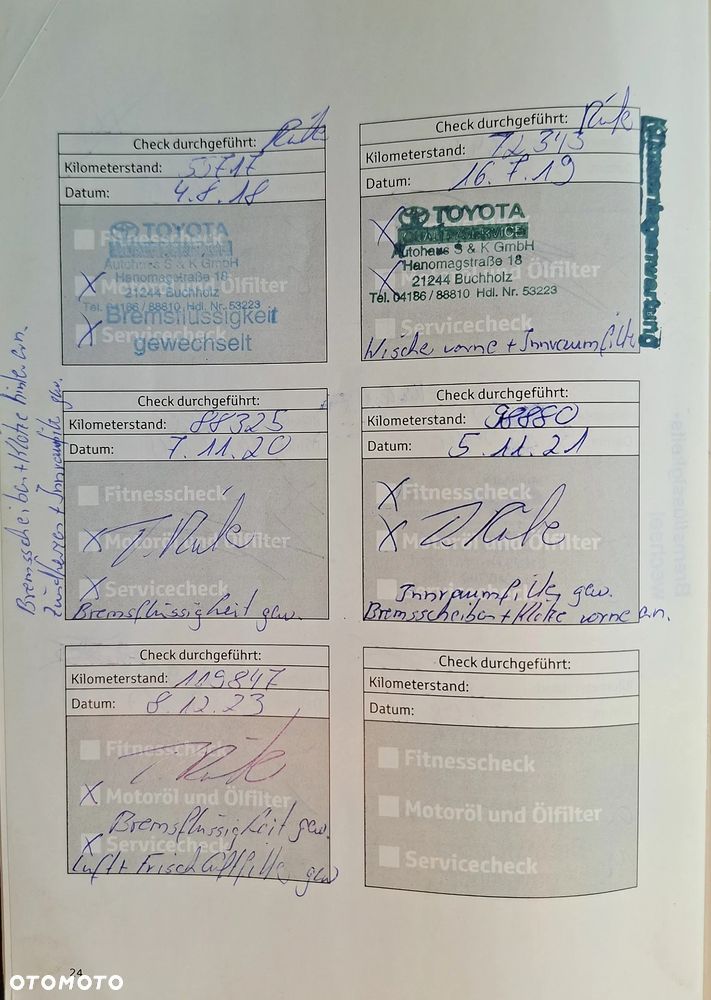 Check durchgeführt:
Kilometerstand: 55717
Datum: 4.8.18
TOYOTA
Fitnesscheck
Autohaus S & K GmbH
Hanomagstraße 18
Motoröl und Ölfilter
21244 Buchholz
Tel. 04186 / 88810 Hdl. Nr. 53223
Bremsflüssigkeit
Servicecheck
gewechselt
Check durchgeführt:
Kilometerstand: 72343
Datum: 16.7.19
TOYOTA
Autohaus S & K GmbH
Hanomagstraße 18
Ölfilter
21244 Buchholz
Tel. 04186 / 88810 Hdl. Nr. 53223
Servicecheck
Wischer vorne + Innraumfilter
Bremsscheiben + Klötze hinten ern.
Zündkerzen + Innraumfilt gew.
Check durchgeführt:
Kilometerstand: 88325
Datum: 7.11.20
Fitnesscheck
Motoröl und Ölfilter
Servicecheck
Bremsflüssigkeit gew.
Check durchgeführt:
Kilometerstand: 98880
Datum: 5.11.21
Fitnesscheck
Motoröl und Ölfilter
Innraumfilter gew.
Servicecheck
Bremsscheiben + Klötze vorne ern.
Check durchgeführt:
Kilometerstand: 119847
Datum: 8.12.23
Fitnesscheck
Motoröl und Ölfilter
Bremsflüssigkeit gew.
Servicecheck
Luft + Frischluftfilter gew
Check durchgeführt:
Kilometerstand:
Datum:
Fitnesscheck
Motoröl und Ölfilter
Servicecheck
24
OTOMOTO